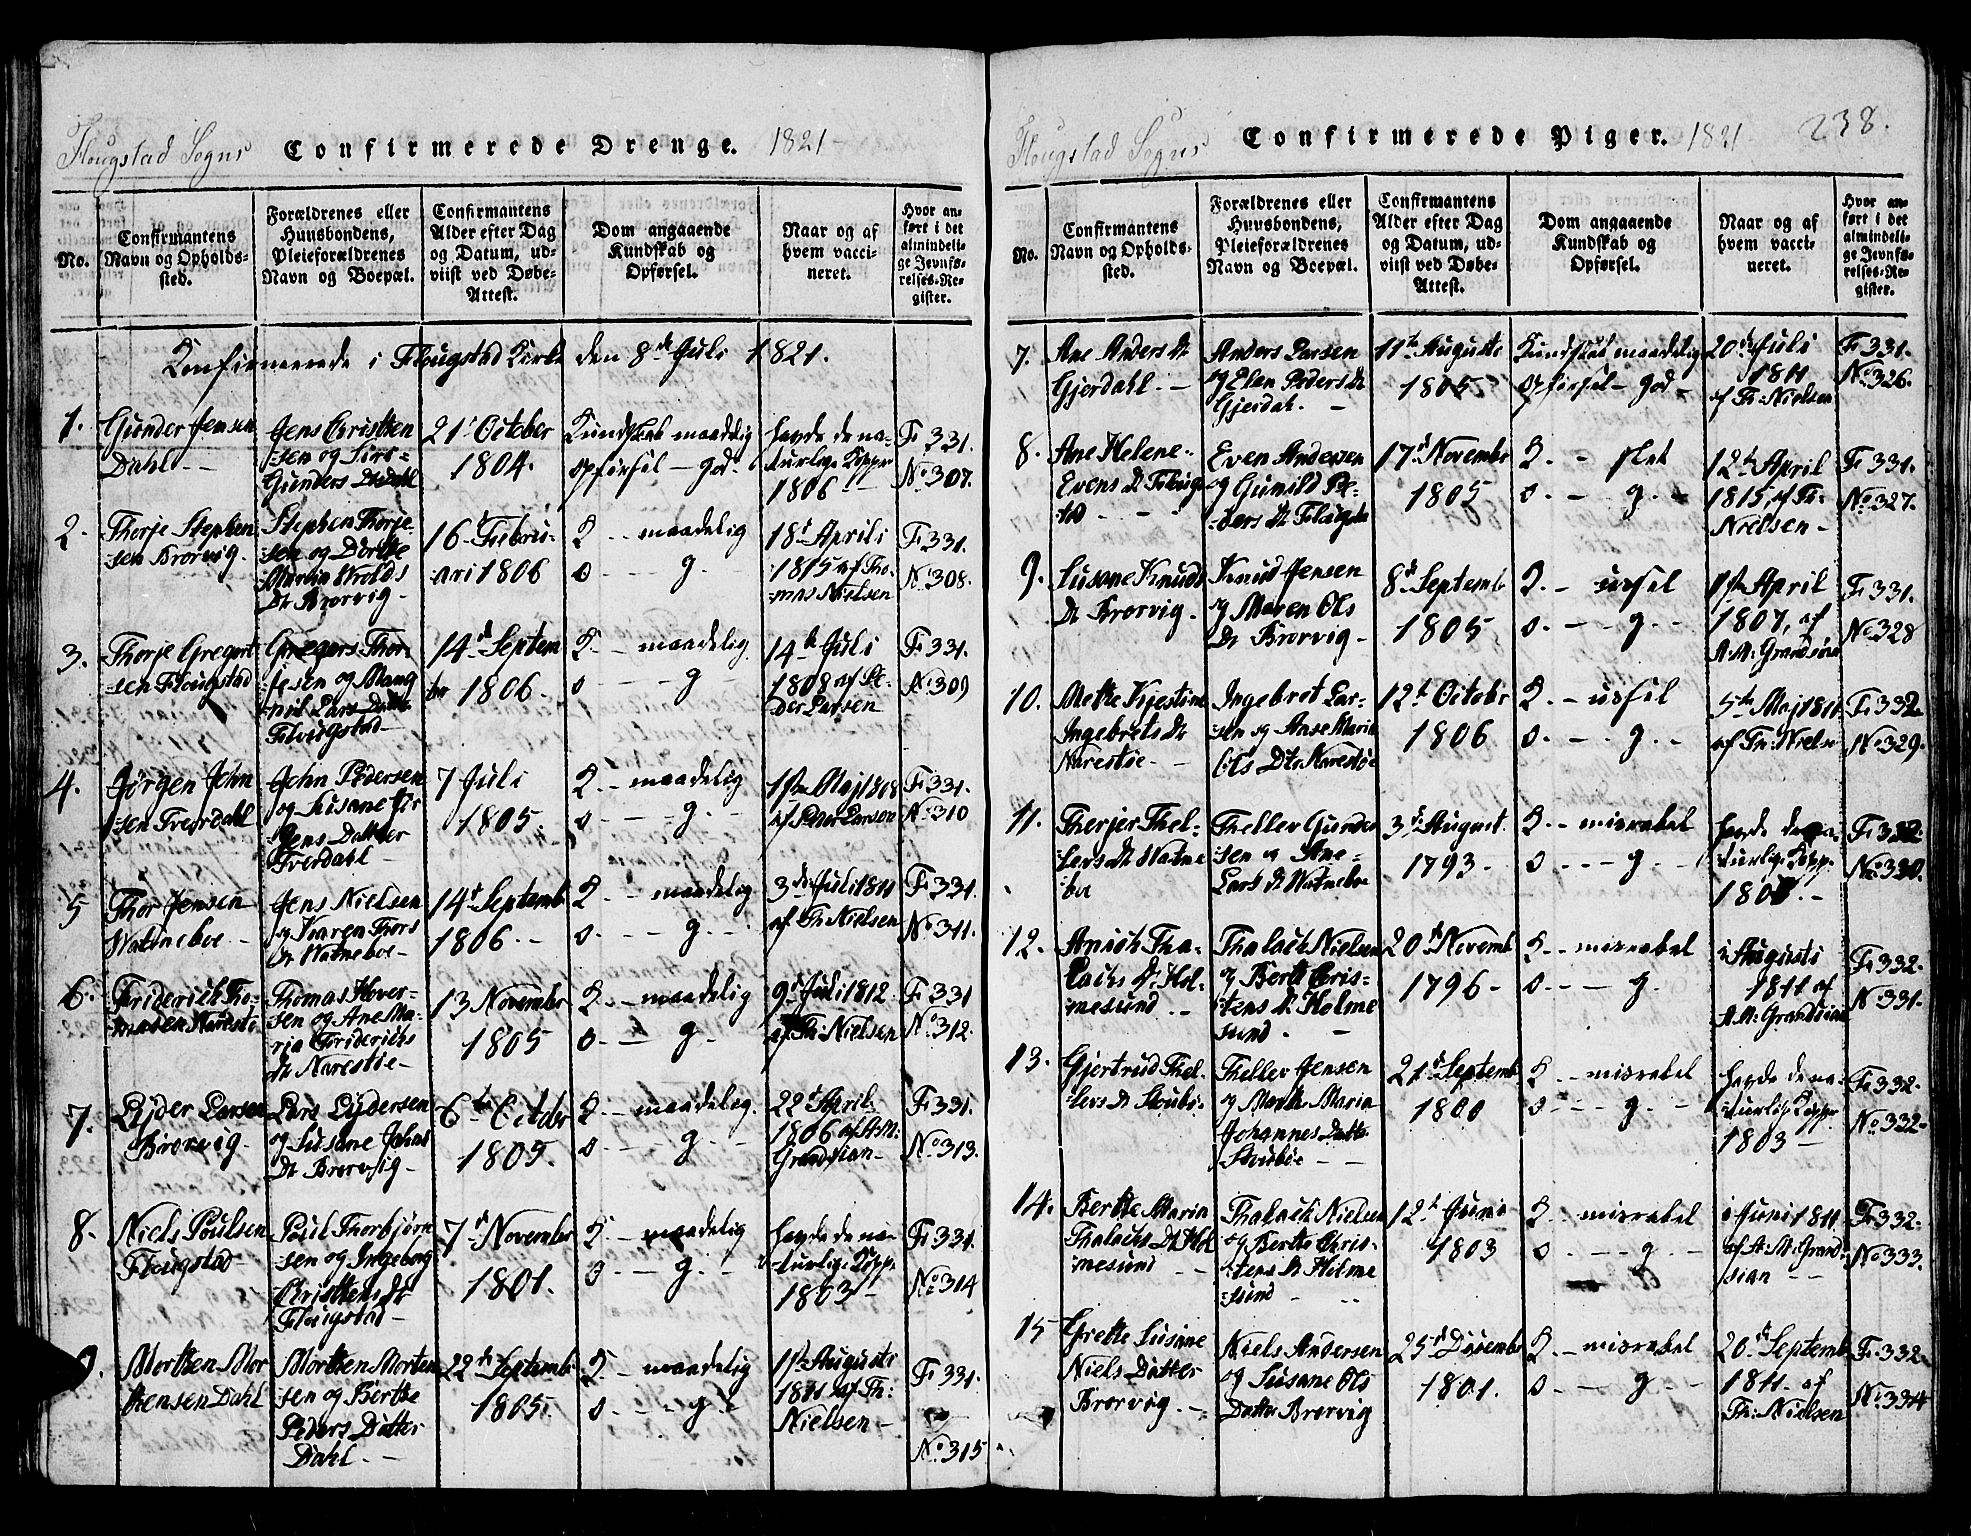 Flougstad Sogns Confirmerede Drenge. 1821
No.
Confirmantens
Navn og Opholds-
sted.
Forældrenes eller
Huusbondens,
Pleieforældrenes
Navn og Boepæl.
Confirmantens
Alder efter Dag
og Datum, ud-
viist ved Døbe-
Attest.
Dom angaaende
Kundskab og
Opførsel.
Naar og af
hvem vacci-
neret.
Hvor an-
ført i det
almindeli-
ge Jevnfø-
relses-Re-
gister.
Confirmerede i Flougstad Kirke den 8de Juli 1821.
1.
Gunder Jensen
Dahl --
Jens Christen
sen og Siri
Gunders Dr Dahl
21. October
1804.
Kundskab maadelig
opførsel - god.
havde de na-
turlige Kopper
1806
F. 331.
No 307.
2.
Thorje Stephen
sen Brørvig.
Stephen Thorje-
sen og Dorthe
Maria Wrolds
Dr Brørvig -
16. Febru-
ari 1806
K -- maadelig
o --- g. -
18. Aprili
1815 af Tho-
mas Nielsen
F. 331.
No 308.
3.
Thorje Gregert
sen Flougstad
Gregers Thor-
jesen og Mang
nil Lars Datter
Flougstad
14d Septem
br 1806.
K -- maadelig
o --- g -
14de Juli
1808 af Pe-
der Larsen
F. 331.
No 309
4.
Jørgen John
sen Tverdahl
John Pedersen
og Susane Jør
gens Datter
Tverdahl -
7 Juli
1805.
K -- maadelig
o --- g. -
1ste Maj 1808
af Peder Larsen
F. 331.
No 310
5
Thor Jensen
Watneboe
Jens Nielsen
og Karen Thors
Dr Watneboe -
14d Septemb
1806. -
K -- maadelig
o --- g. -
3de Juli 1811
af Th Nielsen
F. 331.
No 311.
6.
Friderich Tho-
masen Narestø
Thomas Hover-
sen og Ane Ma-
ria Friderichs
Dr Narestøe -
13 Novembr
1805
K -- maadelig
o --- g. -
9d Juli 1812
af Th: Nielsen
F. 331
No 312.
7.
Lyder Larsen
Brørvig -
Lars Lydersen
og Susane Johns
Dr Brørvig -
6te Octobr
1805.
K -- maadelig
o --- g. -
22d April
1806 af A. M:
Grandsian -
F. 331.
No 313.
8.
Niels Poulsen
Flougstad
Poul Thorbjørn
sen og Ingeborg
Christens Dr
Flougstad -
7d November
1801.
K -- maadelig
o --- g. -
havde de na-
turlige Kopper
1803 -
F. 331.
No 314
9.
Morthen Mor
thensen Dahl
Morthen Morten
sen og Berthe
Peders Datter
Dahl. -
22de Septembr
1805.
K -- maadelig
o --- g. -
1ste Augusti
1811 af Th:
Nielsen -
F. 331.
No 315
Flougstad Sogns Confirmerede Piger. 1821 238.
No.
Confirmantens
Navn og Opholds-
sted.
Forældrenes eller
Huusbondens,
Pleieforældrenes
Navn og Boepæl.
Confirmantens
Alder efter Dag
og Datum, ud-
viist ved Døbe-
Attest.
Dom angaaende
Kundskab og
Opførsel.
Naar og af
hvem vacci-
neret.
Hvor an-
ført i det
almindeli-
ge Jevnfø-
relses-Re-
gister.
7.
Ane Anders Dr
Gjerdahl. -
Anders Larsen
og Elen Peders Dr
Gjerdal. -
11te Augusti
1805
Kundskab maadelig
opførsel - god -
20d Juli
1811
af Th: Nielsen
F. 331.
No 326.
8.
Ane Helene
Evens Dr Flougs
tad - -
Even Andersen
og Gunild Pe-
ders Dr Flougsta
17d Novembr
1805
K. - slet
o. - - g. -
12te April
1815 af Th:
Nielsen -
F. 331.
No 327.
9.
Susane Knuds
Dr Brørvig -
Knud Jensen
og Maren Ols
Dr Brørvig -
8d Septemb
1805
K. - ussel
o. - - g. -
1ste April
1807, af
A. M: Grandsian
F. 331.
No 328
10.
Mette Kjestine
Ingebrets Dr
Narestøe -
Ingebret Lar-
sen og Anne Marie
Ols Dtr Narestøe
12te Octobr
1806
K - ussel
o. - - g. -
5te Maj 1811
af Th: Nielse
F. 332
No 329.
11.
Therjer Thel-
lefs Dr Watne
bu
Thellev Gunder
sen og Ane
Lars Dr Watneboe
3d August.
1793 -
K. - misrabel
o. - - g. -
havde de na-
turlige Kopp.
F. 332.
No 330.
12.
Anich Tha-
lachs Dr Hol-
mesund -
Thalach Nielsen
og Berth Chris-
tens Dr Holme
sund. -
20d Novemb
1796 -
K. - misrabel
o. - - g. -
i Augusti
1811 af
A. M: Grandsian
F. 332.
No 331.
13.
Gjertrud Thel-
lefs Dr Stoubø
Thellev Jensen
og Marthe Maria
Johannes Datte
Stoubøe - -
21d Septemb
1800
K. - misrabel
o. - - g. -
havde de na-
turlige Kopper
1803 -
F. 332.
No 332.
14.
Berthe Maria
Thalachs Dr Hol
mesund -
Thalach Nielsen
og Berthe Chris-
tens Dr Holme
sund -
12te Juni
1803
K. - misrabel
o. - - g. -
i Juni 1811
af A: M: Grand-
sian -
F. 332.
No 333.
15
Grethe Susane
Niels Datter
Brørvig. -
Niels Andersen
og Susane Ols
Datter Brørvig
25d Decembr
1801.
K. - misrabel
o. - - g. -
20. Septemb
1811. af
Th: Nielsen
F. 332.
No 334